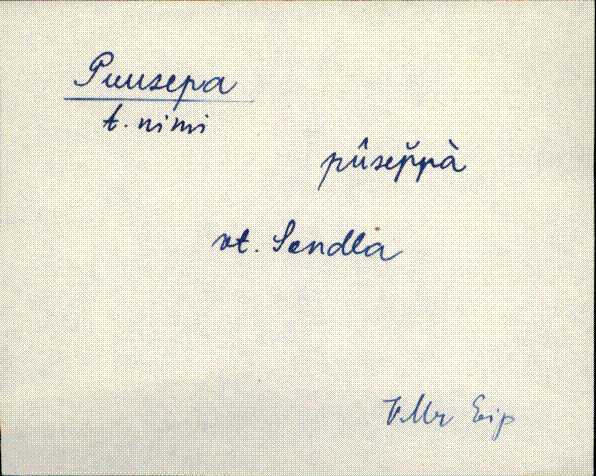 Puusepa
t. nimi
pûsep̆pà
vt. Sendla
VMr Eip